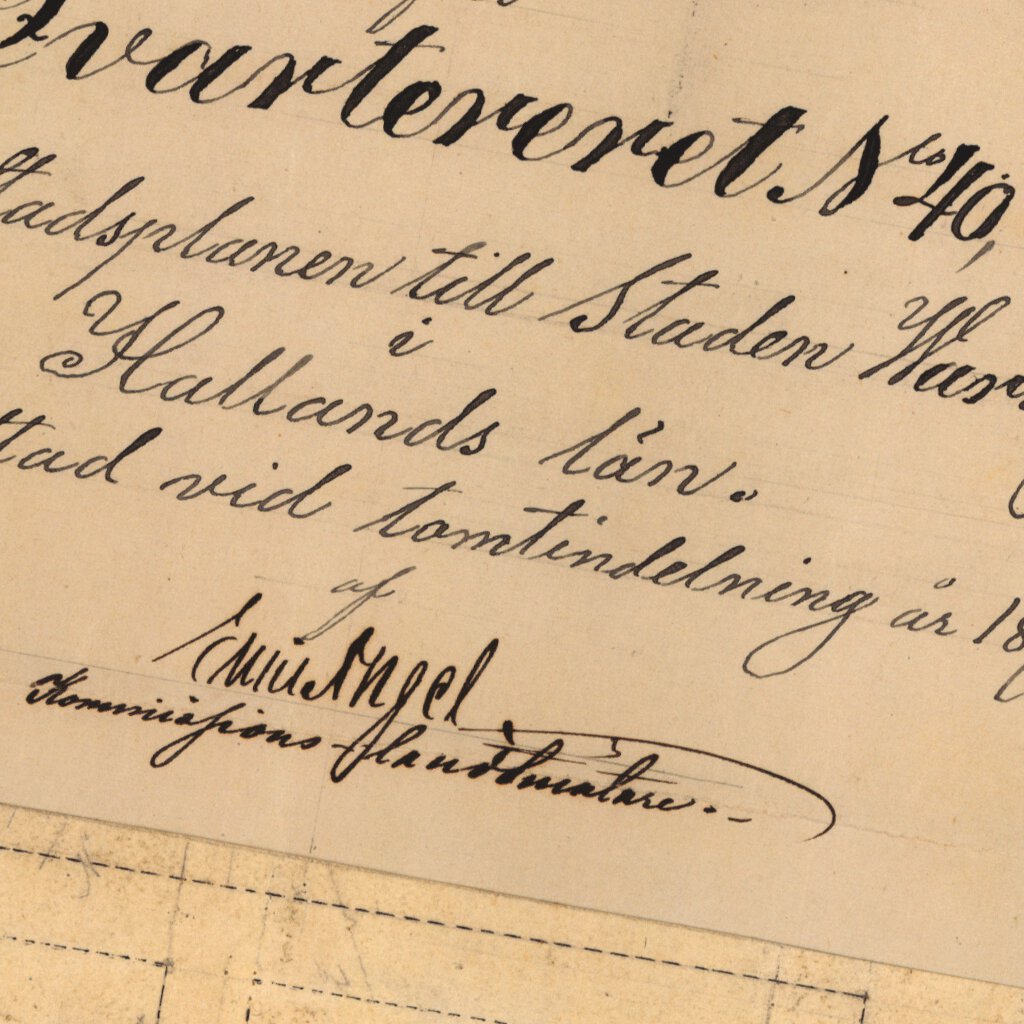 Qvarteret Nco 40,
stadsplanen till Staden War
i
Hallands län.
vid tomtindelning år 18
af
Emil Angel
Kommissions-landtmätare.